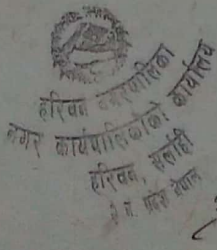 हरिवन नगरपालिका
नगर कार्यपालिकाको कार्यालय
हरिवन, सर्लाही
२ नं. प्रदेश नेपाल